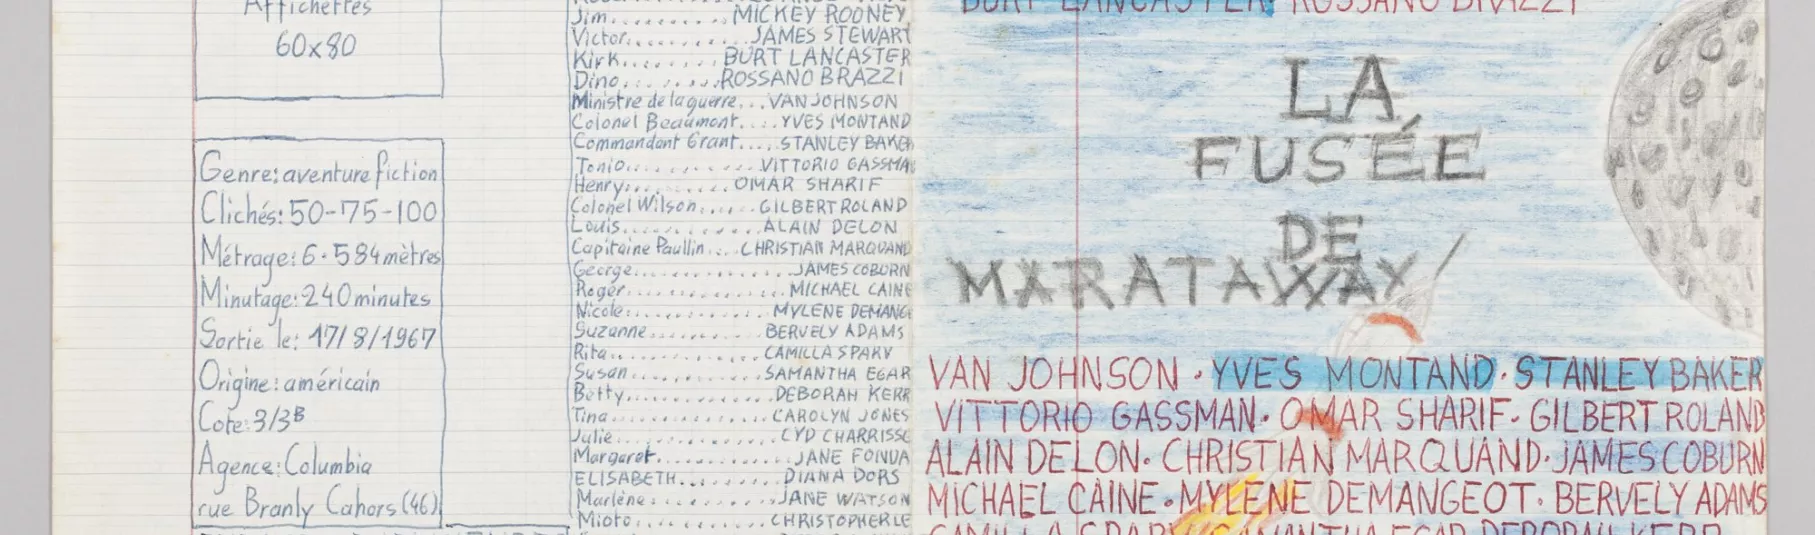 Affichettes
60x80
Genre: aventure fiction
Clichés: 50-75-100
Métrage: 6.584 mètres
Minutage: 240 minutes
Sortie le: 17/8/1967
Origine: américain
Cote: 3/3B
Agence: Columbia
rue Branly Cahors (46)
Jim........MICKEY ROONEY
Victor..........JAMES STEWART
Kirk........BURT LANCASTER
Dino........ROSSANO BRAZZI
Ministre de la guerre...VAN JOHNSON
Colonel Beaumont....YVES MONTAND
Commandant Grant....STANLEY BAKER
Tonio..............VITTORIO GASSMA
Henry...........OMAR SHARIF
Colonel Wilson......GILBERT ROLAND
Louis..............ALAIN DELON
Capitaine Paullin....CHRISTIAN MARQUAND
George..............JAMES COBURN
Roger..............MICHAEL CAINE
Nicole..............MYLENE DEMANG
Suzanne............BERVELY ADAMS
Rita..............CAMILLA SPARV
Susan..............SAMANTHA EGAR
Betty..............DEBORAH KERR
Tina..............CAROLYN JONES
Julie..............CYD CHARRISSE
Margaret............JANE FONDA
ELISABETH...........DIANA DORS
Marlène............JANE WATSON
Mioto..............CHRISTOPHER LE
BURT LANCASTER. ROSSANO BRAZZI
LA
FUSÉE
DE
MARATAWAY
VAN JOHNSON · YVES MONTAND · STANLEY BAKER
VITTORIO GASSMAN · OMAR SHARIF · GILBERT ROLAND
ALAIN DELON · CHRISTIAN MARQUAND · JAMES COBURN
MICHAEL CAINE · MYLENE DEMANGEOT · BERVELY ADAMS
CAMILLA SPARV SAMANTHA EGAR DEBORAH KERR